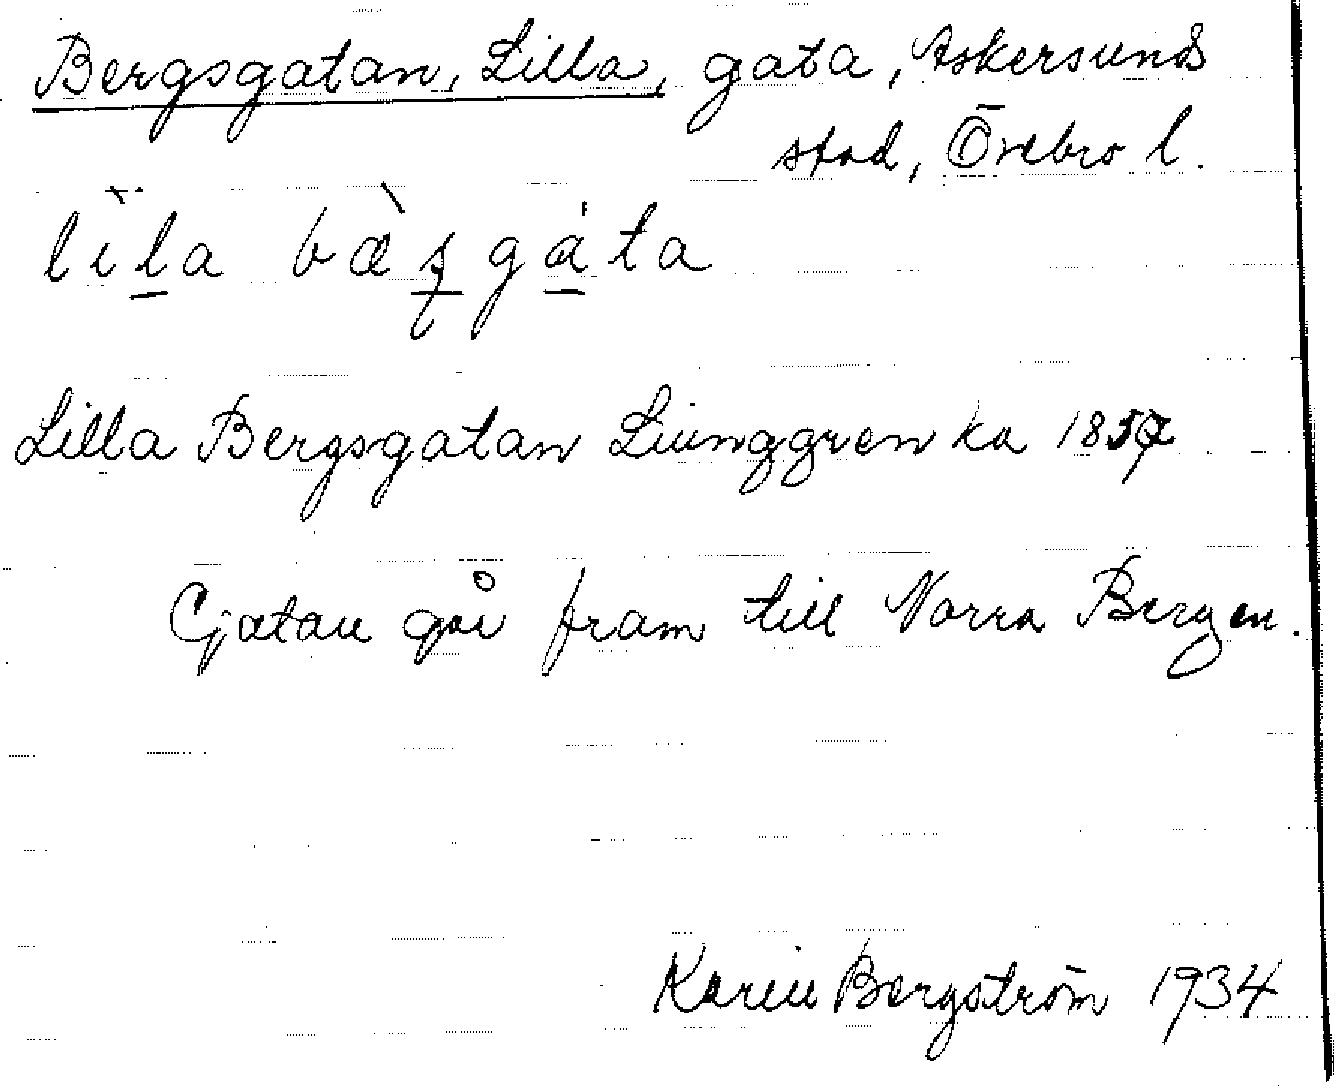 Bergsgatan, Lilla, gata, Askersunds
stad, Örebro l.
lìl̠a bæ̀ʂ̠gá̠ta
Lilla Bergsgatan Liunggren ka 1857
Gatan går fram till Norra Bergen.
Karin Bergström 1934